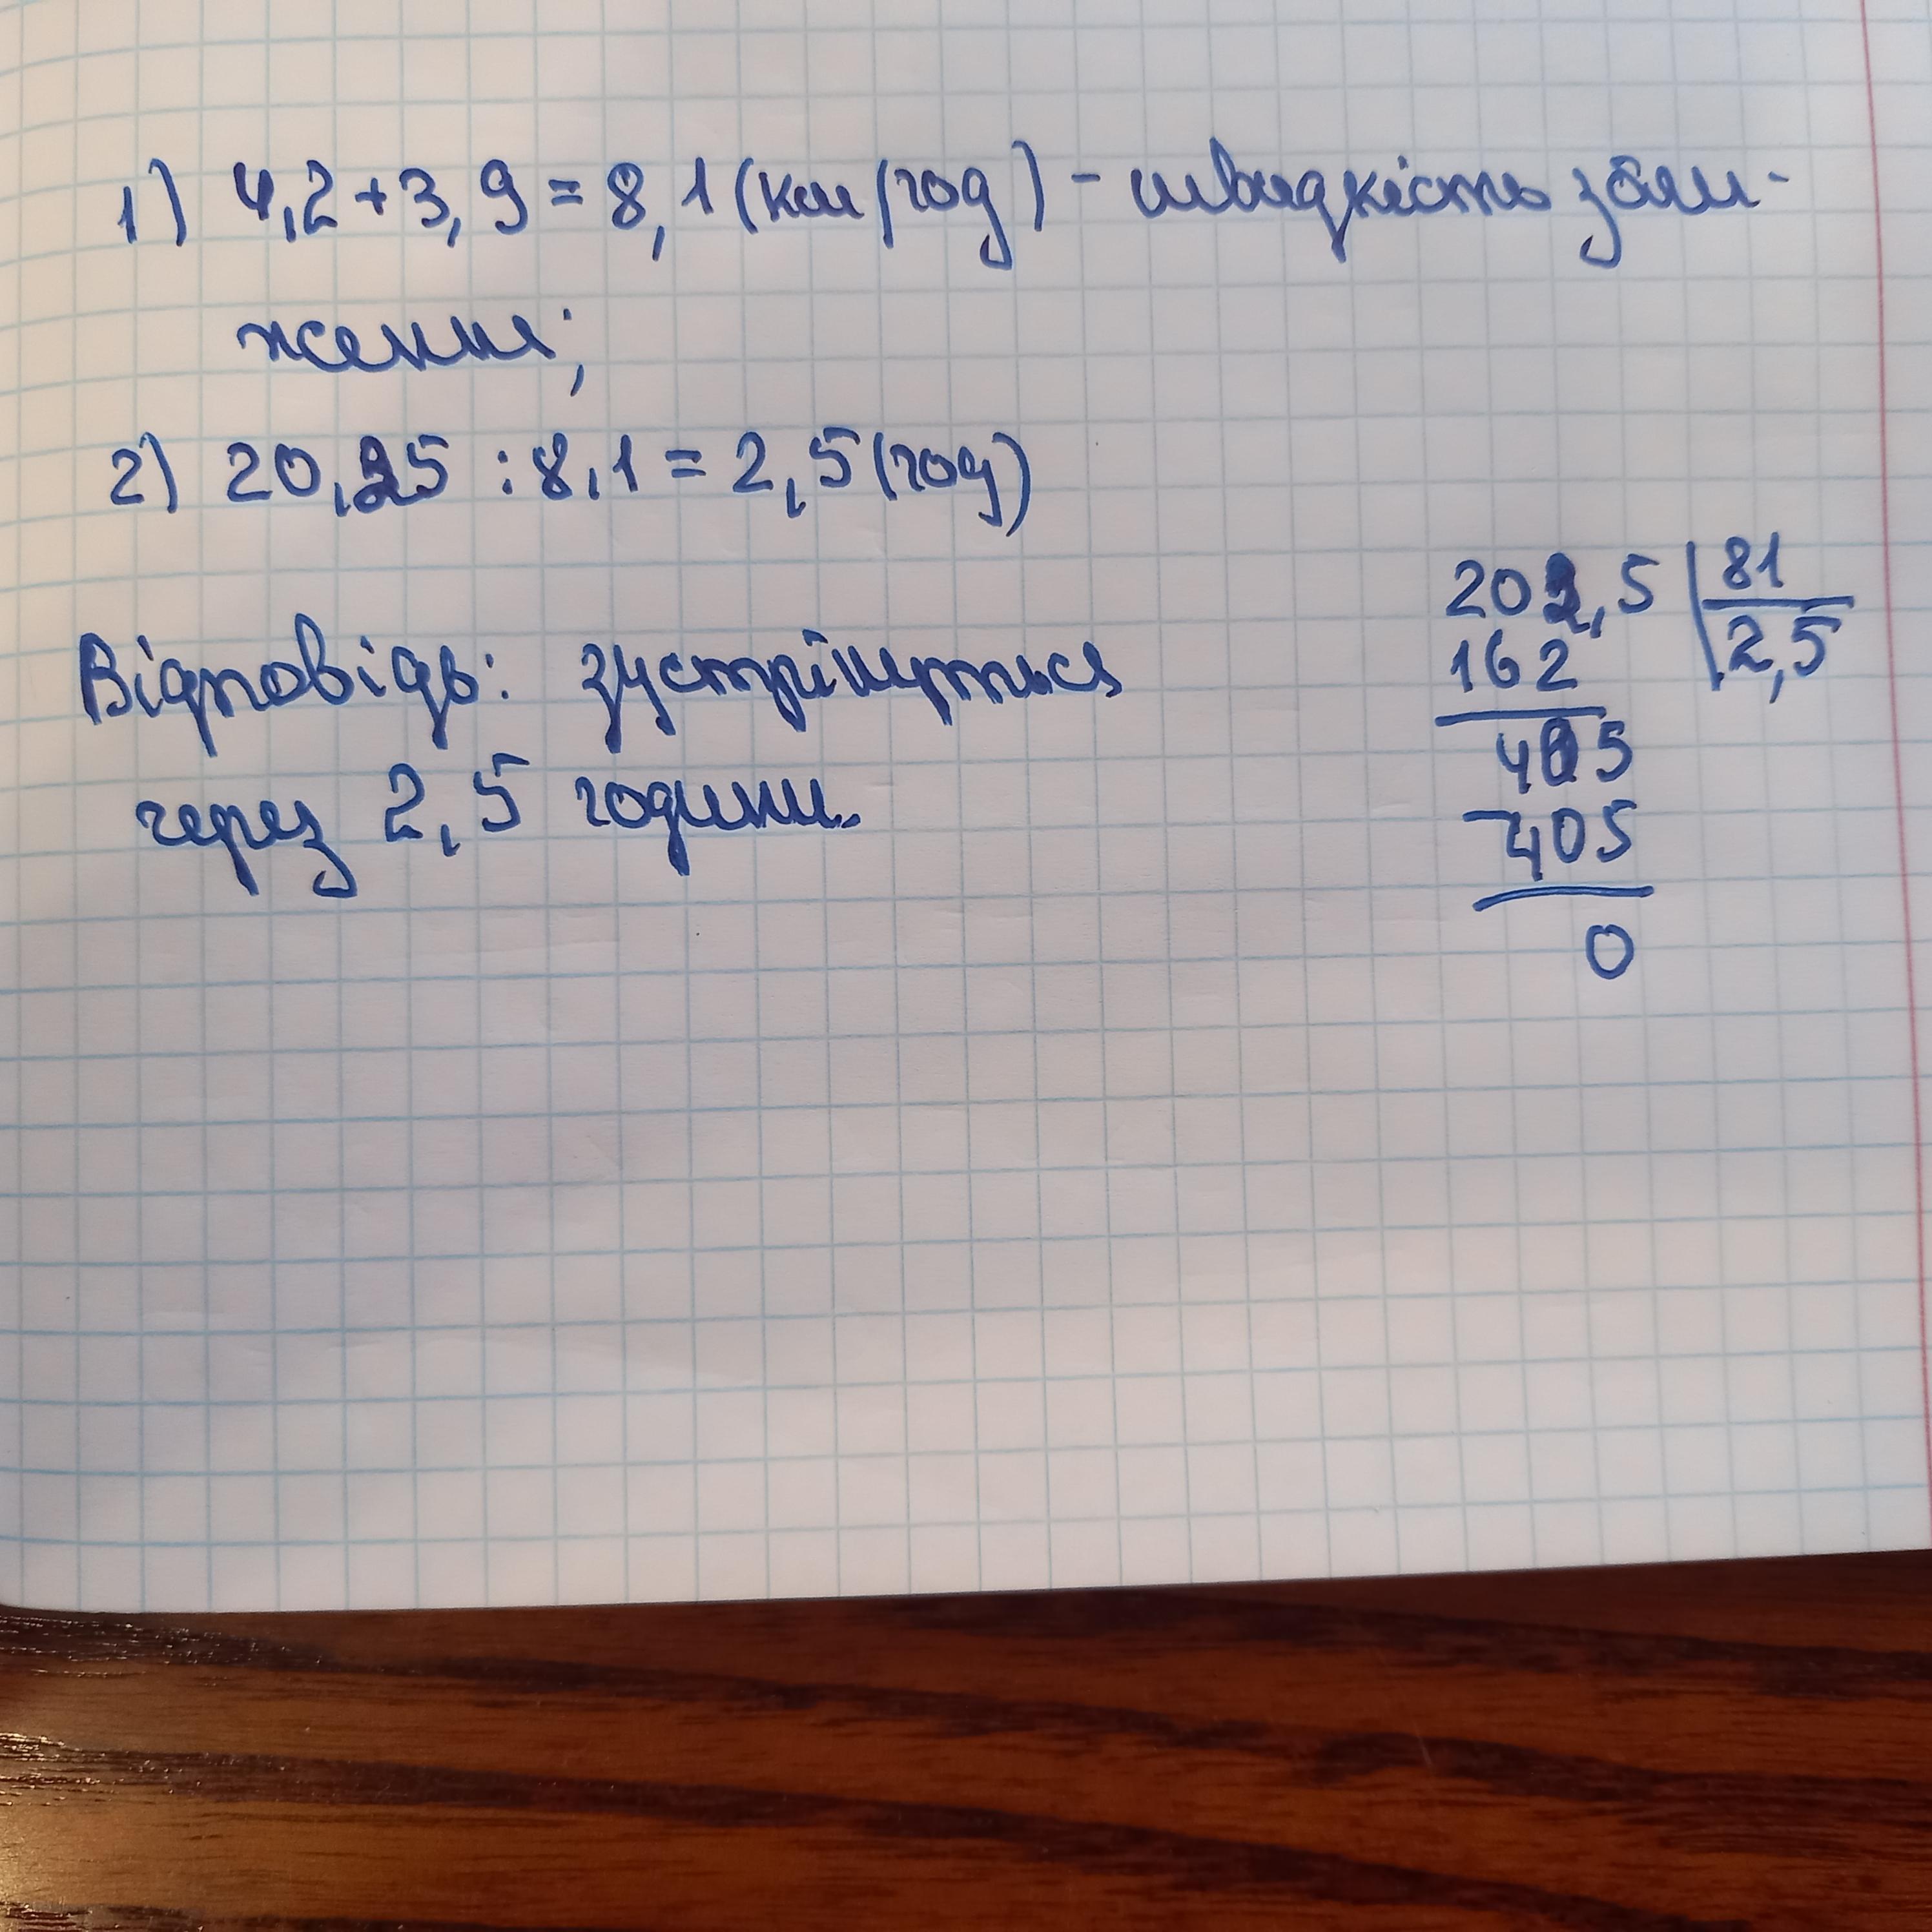 1) 4,2 + 3,9 = 8,1 (км/год) - швидкість збли-
ження;
2) 20,25 : 8,1 = 2,5 (год)
202,5 | 81
162 | 2,5
405
405
0
Відповідь: зустрінуться
через 2,5 години.